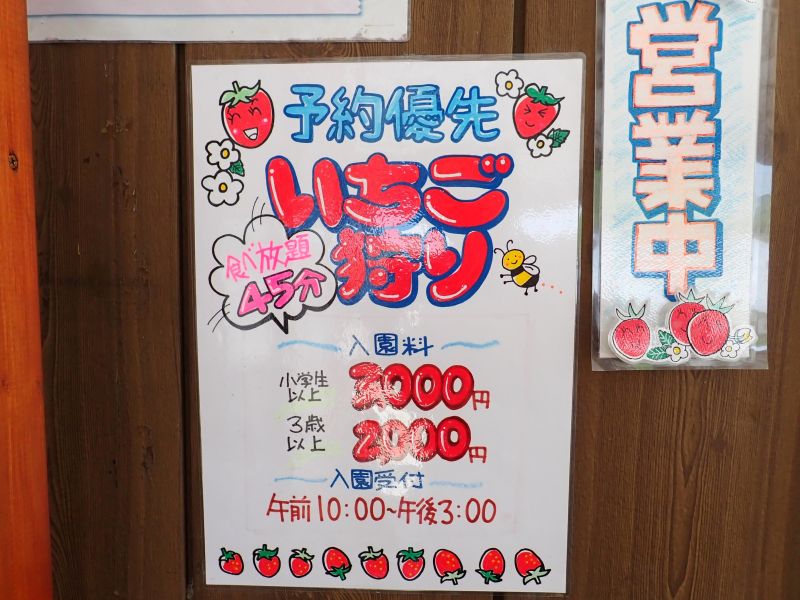 予約優先
いちご
狩り
食べ放題
45分
入園料
小学生
以上
3歳
以上
2,000円
入園受付
午前10:00~午後3:00
営業中